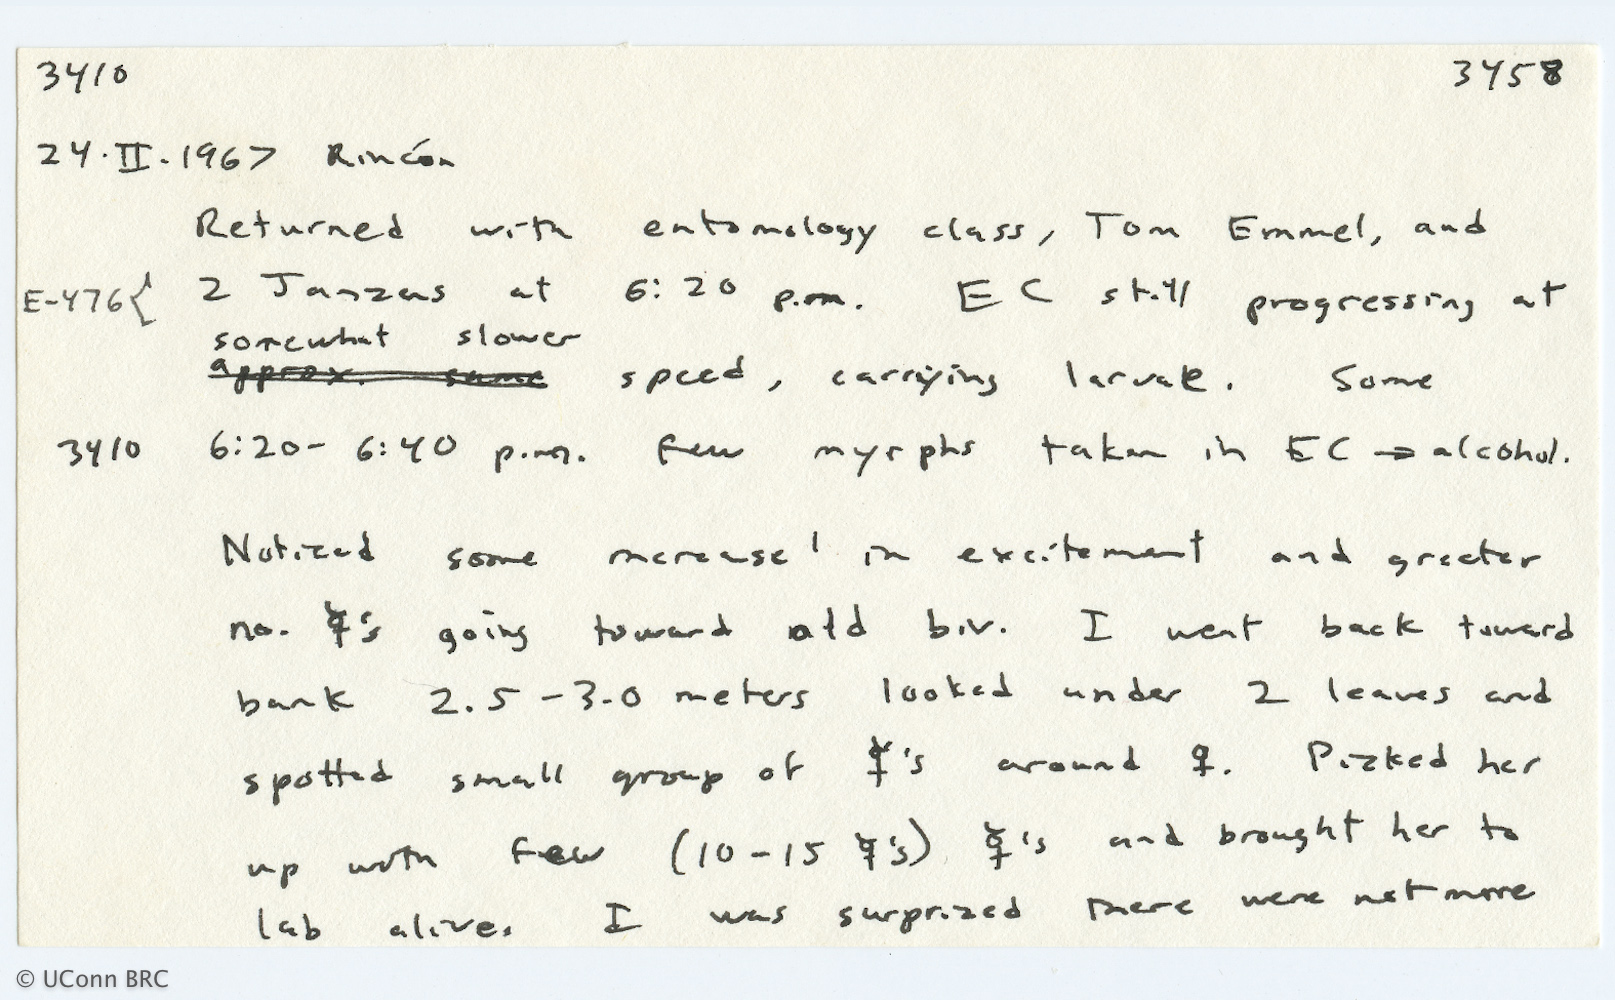 3410 3458
24.II.1967 Rincón
Returned with entomology class, Tom Emmel, and
E-476{ 2 Janzens at 6:20 p.m. EC still progressing at
somewhat slower
approx. same speed, carrying larvae. Some
3410 6:20-6:40 p.m. Few myrphs taken in EC → alcohol.
Noticed some increase' in excitement and greater
no. ☿'s going toward old biv. I went back toward
bank 2.5-3.0 meters looked under 2 leaves and
spotted small group of ☿'s around ♀. Picked her
up with few (10-15 ☿'s) ☿'s and brought her to
lab alive. I was surprized there were not more
© UConn BRC